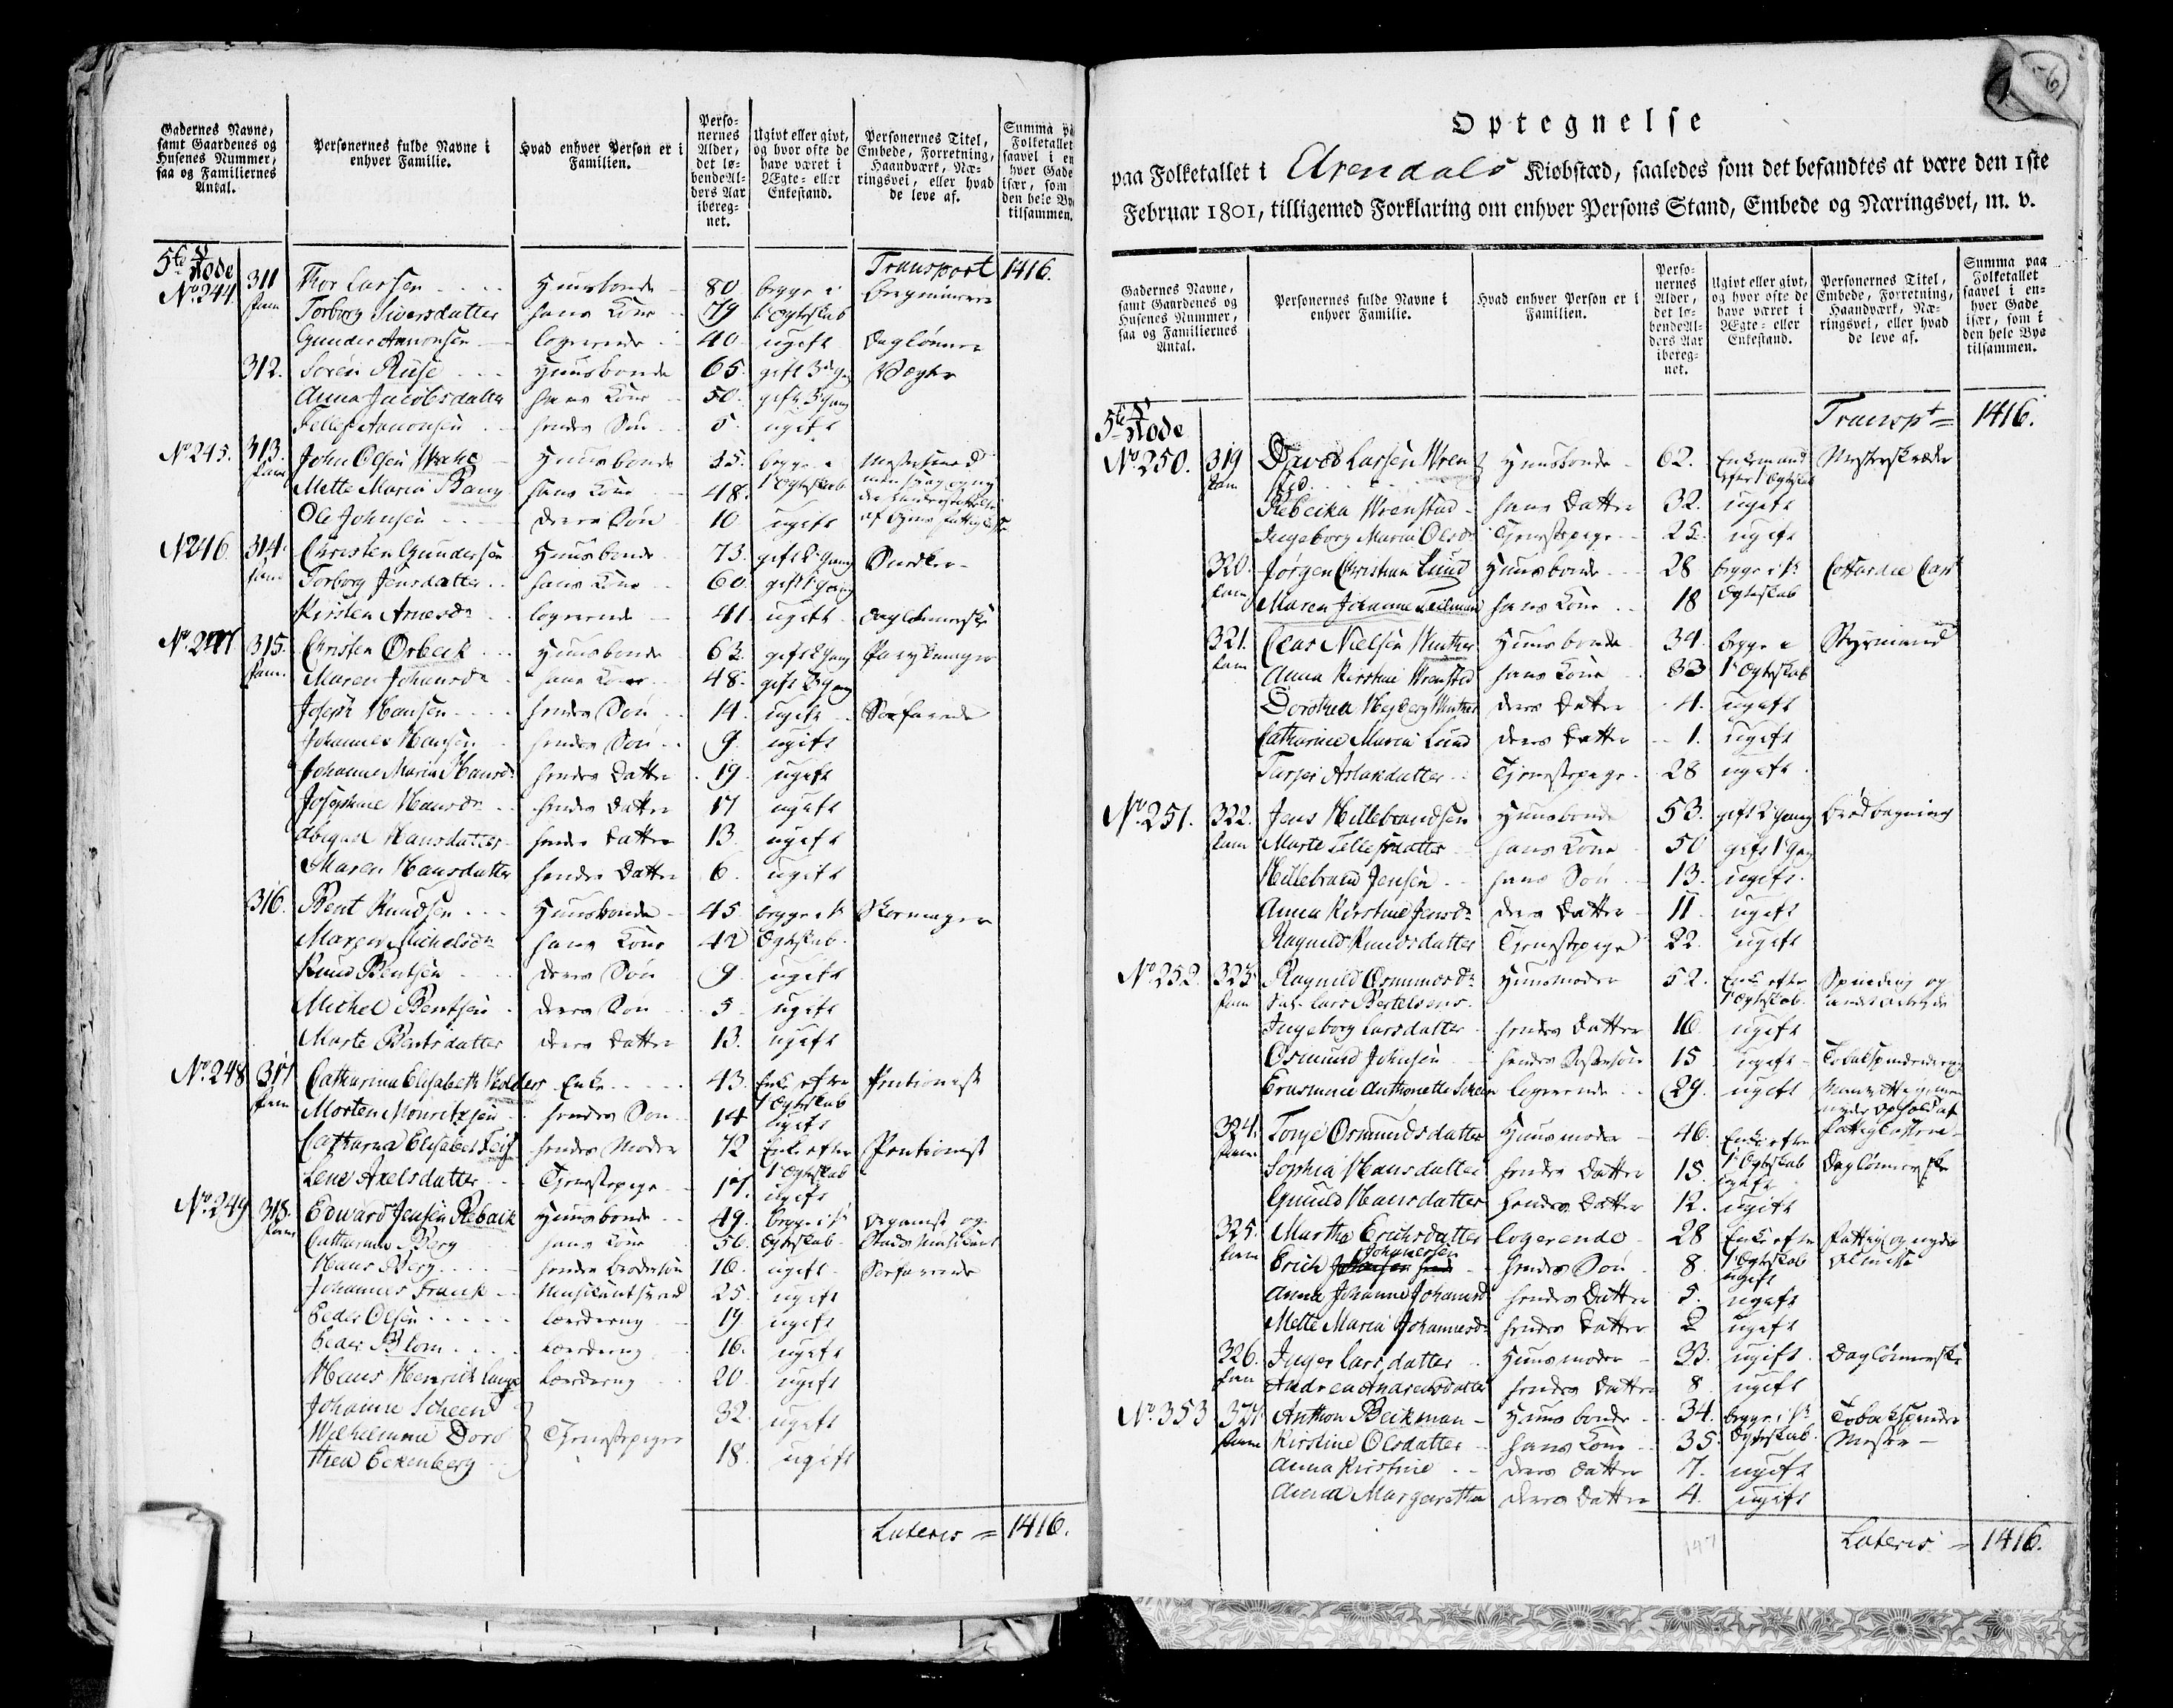 Gadernes Navne, samt Gaardenes og Husenes Nummer, saa og Familiernes Antal.
Personernes fulde Navne i enhver Familie.
Hvad enhver Person er i Familien.
Personernes Alder, det løbende Alders Aar iberegnet.
Ugivt eller givt, og hvor ofte de have været i Ægte- eller Enkestand.
Personernes Titel, Embede, Forretning, Haandværk, Næringsvei, eller hvad de leve af.
Summa paa Folketallet saavel i enhver Gade især, som i den hele Bye tilsammen.
5te Rode Transport 1416.
No. 244. 311 fam Thor Larsen Huusbonde 80 begge i
Torborg Siversdatter hans Kone 79 1te Egteskab
Gunder Aanonsen logerende 40 ugift Daglønner
312. Søren Ruse Huusbonde 65. gift 3die Gang Vægter
Anna Jacobsdatter hans Kone 50. gift Gang
Tellef Aanonsen hendes Søn 5. ugift
No. 245. 313. fam John Olsen Huusbonde 35. begge i
Mette Maria Bang hans Kone 48. 1te Egteskab
Ole Johnsen deres Søn 10 ugift
No 246. 314. fam Christen Gundersen Huusbonde 73. gift 2 Gang Snedker
Torborg Jensdatter hans Kone 60. gift 1 Gang
Kirsten Arnesdr. logerende 41. ugift Daglønnerske
No. 247 315. fam. Christen Orbeck Huusbonde 63. gift 2 Gang Parykmager
Maren Johansdr. hans Kone 48. gift 3 Gang
Joseph Hansen hendes Søn 14. ugift Søefarende
Johannes Hansen hendes Søn 9. ugift
Johanne Maria Hansdr. hendes Datter 19. ugift
Josephine Hansdr. hendes Datter 17 ugift
Abigael Hansdatter hendes Datter 13. ugift
Maren Hansdatter hendes Datter 6. ugift
316. Bent Knudsen Huusbonde 45. begge i 1te Skomager
Maren Michelsdr. hans Kone 42 Egteskab.
Knud Bentsen deres Søn 9. ugift
Michel Bentsen deres Søn 5 ugift
Marte Bentsdatter deres Datter 13. ugift
No. 248 317 fam Catharina Elisabeth Holders Enke 43. Enke efter Pentionist
1te Egteskab
Morten Mouritzsen hendes Søn 14 ugift
Catharina Elisabet Leist hendes Moder 72 Enke efter Pentionist
1te Egteskab
Lene Axelsdatter Tjenestepige 17. ugift
No. 249 318. fam Edward Jensen Rebach Huusbonde 49. begge i 1te Organist og
Catharina Berg hans Kone 56. Egteskab Stads Musikant
Hans Berg hendes Brodersøn 16. ugift Søefarende
Johannes Franck Musikantsvend 25. ugift
Peder Olsen Lærdreng 19 ugift
Peder Blom Lærdreng 16. ugift
Hans Henrich Lange Lærdreng 20 ugift
Johanne Scheen 32. ugift
Wilhelmine Doro Tjenestepiger
thea Eckenberg 18. ugift
Lateris = 1416.
Optegnelse
paa Folketallet i Arendals Kiøbstæd, saaledes som det befandtes at være den 1ste
Februar 1801, tilligemed Forklaring om enhver Persons Stand, Embede og Næringsvei, m. v.
Gadernes Navne, samt Gaardenes og Husenes Nummer, saa og Familiernes Antal.
Personernes fulde Navne i enhver Familie.
Hvad enhver Person er i Familien.
Personernes Alder, det løbende Alders Aar iberegnet.
Ugivt eller givt, og hvor ofte de have været i Ægte- eller Enkestand.
Personernes Titel, Embede, Forretning, Haandværk, Næringsvei, eller hvad de leve af.
Summa paa Folketallet saavel i enhver Gade især, som i den hele Bye tilsammen.
5te Rode Transpt = 1416.
No. 250. 319 fam David Larsen Wren Huusbonde 62. Enkemand
sted efter 1 Egteskab
Rebecka Wrensted hans Datter 32. ugift
Ingeborg Maria Olsdr. Tjenestepige 25. ugift
320. fam Jørgen Christian Lund Huusbonde 28 begge i 1te
Maren Johanne hans Kone 18 Egteskab
321. fam Claus Nielsen Winther Huusbonde 34. begge i Styrmand
Anna Kirstine Wrensted hans Kone 33 1te Egteskab
Dorothea Winther deres Datter 4. ugift
Catharina Maria Lund deres Datter 1. ugift
Aslaksdatter Tjenestepige 28 ugift
No. 251. 322. fam Jens Hillebrandsen Huusbonde 53. gift 2 Gang Brødbagning
Marte Tellefsdatter hans Kone 50 gift 1 Gang
Hillebrand Jensen hans Søn 13. ugift
Anna Kirstine Jensdr. deres Datter 11 ugift
Ragnild Knudsdatter Tjenestepige 22. ugift
No. 252. 323. fam Ragnild Osmundsdr. Huusmoder 52. Enke efter Spinding og
Sal. Lars Bertelsens 1te Egteskab
Ingeborg Larsdatter hendes Datter 16. ugift
Osmund Johnsen hendes Søstersøn 15 ugift
Erasmine Anthonette Scheen logerende 29. ugift
324. fam Tonje Osmundsdatter Huusmoder 46. Enke efter
Sophia Hansdatter hendes Datter 15. 1te Egteskab Daglønnerske
ugift
Gunild Hansdatter hendes Datter 12. ugift
325. fam Martha Erichsdatter logerende 28 Enke efter Fattig og nyder
Erich Johannesen hendes Søn 8. 1te Egteskab Almisse
ugift
Anna Johanne Johansdr. hendes Datter 5. ugift
Mette Maria Johannesdr. hendes Datter 2 ugift
326. fam Inger Larsdatter Huusmoder 33. ugift Daglønnerske
Andrea Andreasdatter hendes Datter 8 ugift
No. 353 327. fam Anthon Beckman Huusbonde 34. begge i 1te Tobakspinder
Kirstine Olsdatter hans Kone 35. Egteskab. Mester
Anna Kirstine deres Datter 7. ugift
Anna Margaretha deres Datter 4. ugift
147
Lateris = 1416.